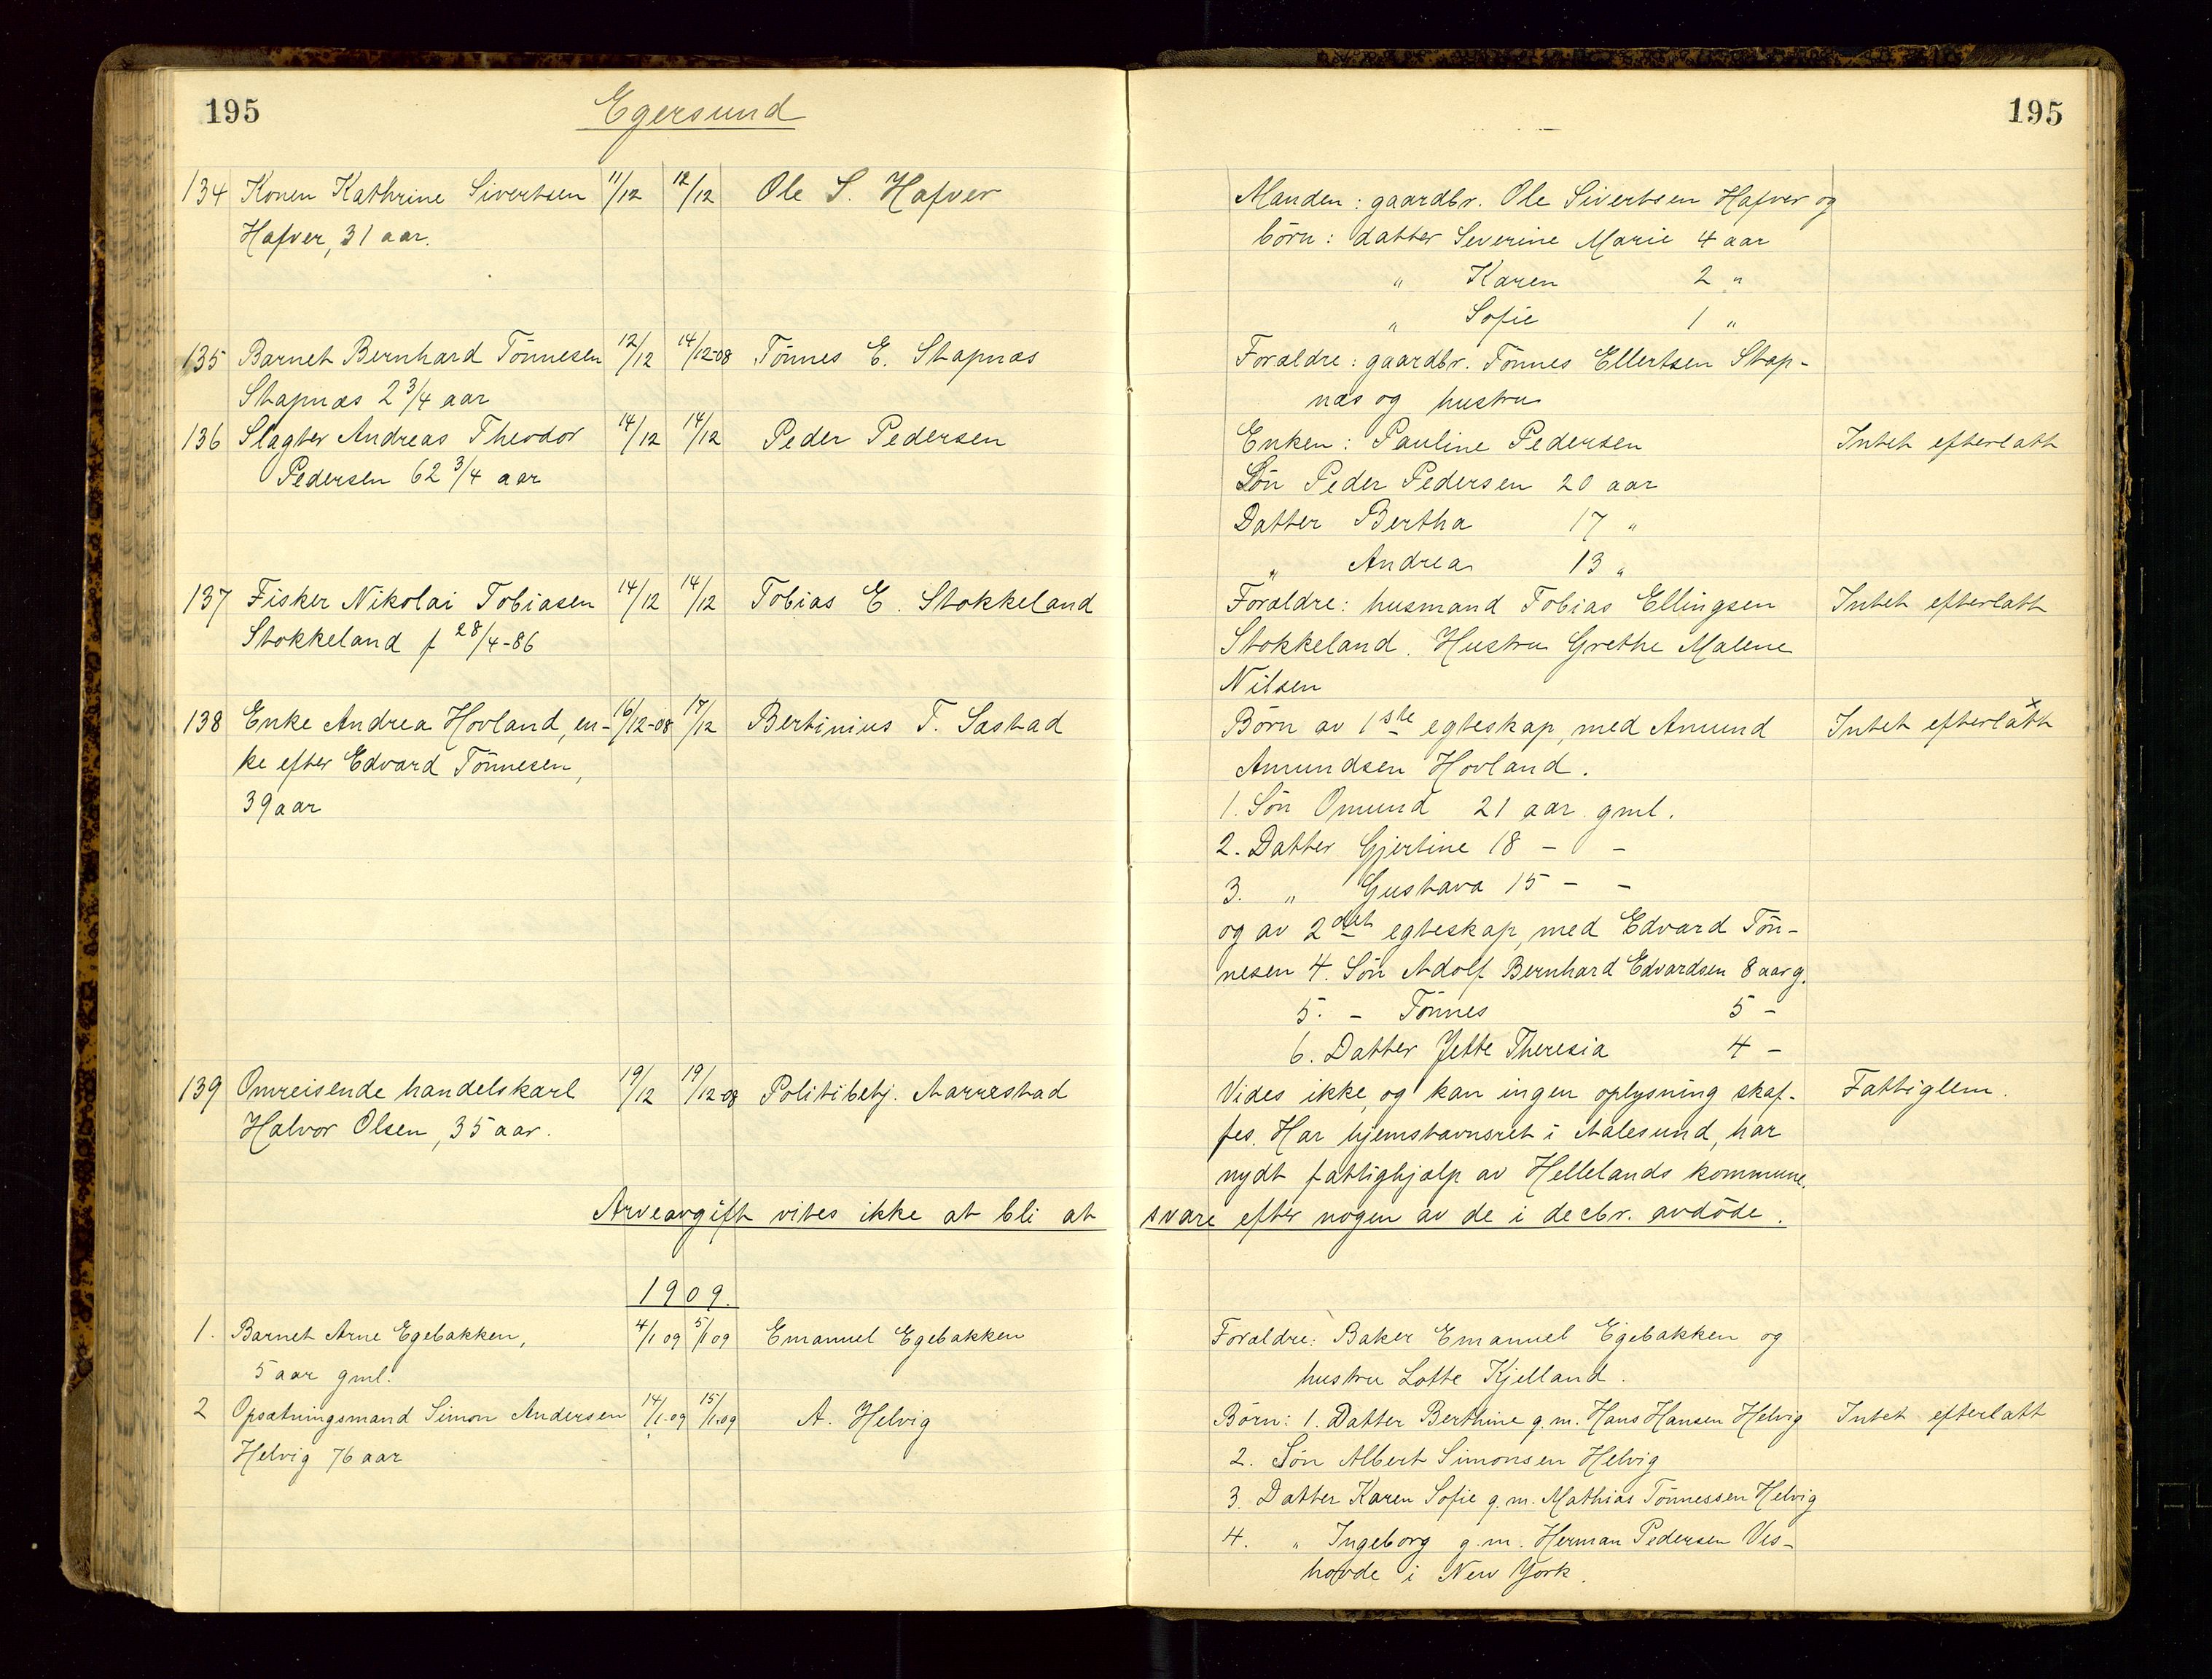 195
Egersund
134 Konen Kathrine Sivertsen 11/12 12/12 Ole S. Hafver
Hafver, 31 aar.
135 Barnet Bernhard Tönnesen 12/12 14/12-08 Tönnes E. Stapnæs
Stapnæs 2 3/4 aar
136 Slagter Andreas Theodor 14/12 14/12 Peder Pedersen
Pedersen 62 3/4 aar
137 Fisker Nikolai Tobiasen 14/12 14/12 Tobias E. Stokkeland
Stokkeland f 28/4-86
138 Enke Andrea Hovland, en- 16/12-08 17/12 Bertinius T. Sæstad
ke efter Edvard Tönnesen,
39 aar
139 Omreisende handelskarl 19/12 19/12-08 Politibetj. Aarrestad
Halvor Olsen, 35 aar.
Arveavgift vites ikke at bli at
1909.
1. Barnet Arne Egebakken, 4/1 09 5/1 09 Emanuel Egebakken
5 aar gml.
2 Opsætningsmand Simon Andersen 14/1-09 15/1-09 A. Helvig
Helvig 76 aar
195
Manden: gaardbr. Ole Sivertsen Hafver og
börn: datter Severine Marie 4 aar
" Karen 2 "
" Sofie 1 "
Forældre: gaardbr. Tönnes Ellertsen Stap-
næs og hustru
Enken: Pauline Pedersen Intet efterlatt
Sön Peder Pedersen 20 aar
Datter Bertha 17 "
" Andrea 13 "
Forældre: husmand Tobias Ellingsen Intet efterlatt
Stokkeland. Hustru Grethe Malene
Nilsen
Börn av 1ste egteskap, med Amund Intet efterlatt x
Amundsen Hovland.
1. Sön Omund 21 aar gml.
2. Datter Gjertine 18 - -
3. " Gustava 15 - -
og av 2det egteskap, med Edvard Tön-
nesen 4. Sön Adolf Bernhard Edvardsen 8 aar g.
5. - Tönnes 5 -
6. Datter Jette Theresia 4 -
Vides ikke, og kan ingen oplysning skaf- Fattiglem.
fes. Har hjemstavnsret i Aalesund, har
nydt fattighjælp av Hellelands kommune.
svare efter nogen av de i decbr. avdöde.
Forældre: Baker Emanuel Egebakken og
hustru Lotte Kjelland.
Börn: 1. Datter Berthine g.m. Hans Hansen Helvig Intet efterlatt
2. Sön Albert Simonsen Helvig
3. Datter Karen Sofie g.m. Mathias Tönnessen Helvig
4. " Ingeborg g.m. Herman Pedersen Ves-
hovde i New York.